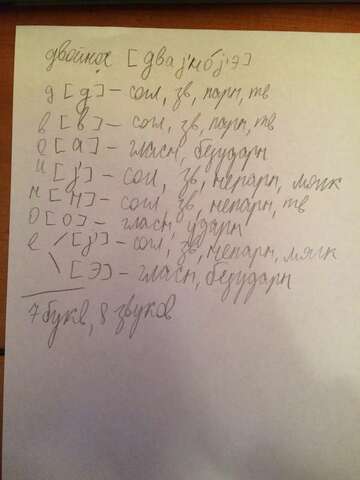 двойное [двај'но́ј'э]
д [д] – согл, зв, парн, тв
в [в] – согл, зв, парн, тв
о [а] – гласн, безударн
й [ј] – согл, зв, непарн, мягк
н [н] – согл, зв, непарн, тв
о [о] – гласн, ударн
е / [ј] – согл, зв, непарн, мягк
\ [э] – гласн, безударн
7 букв, 8 звуков